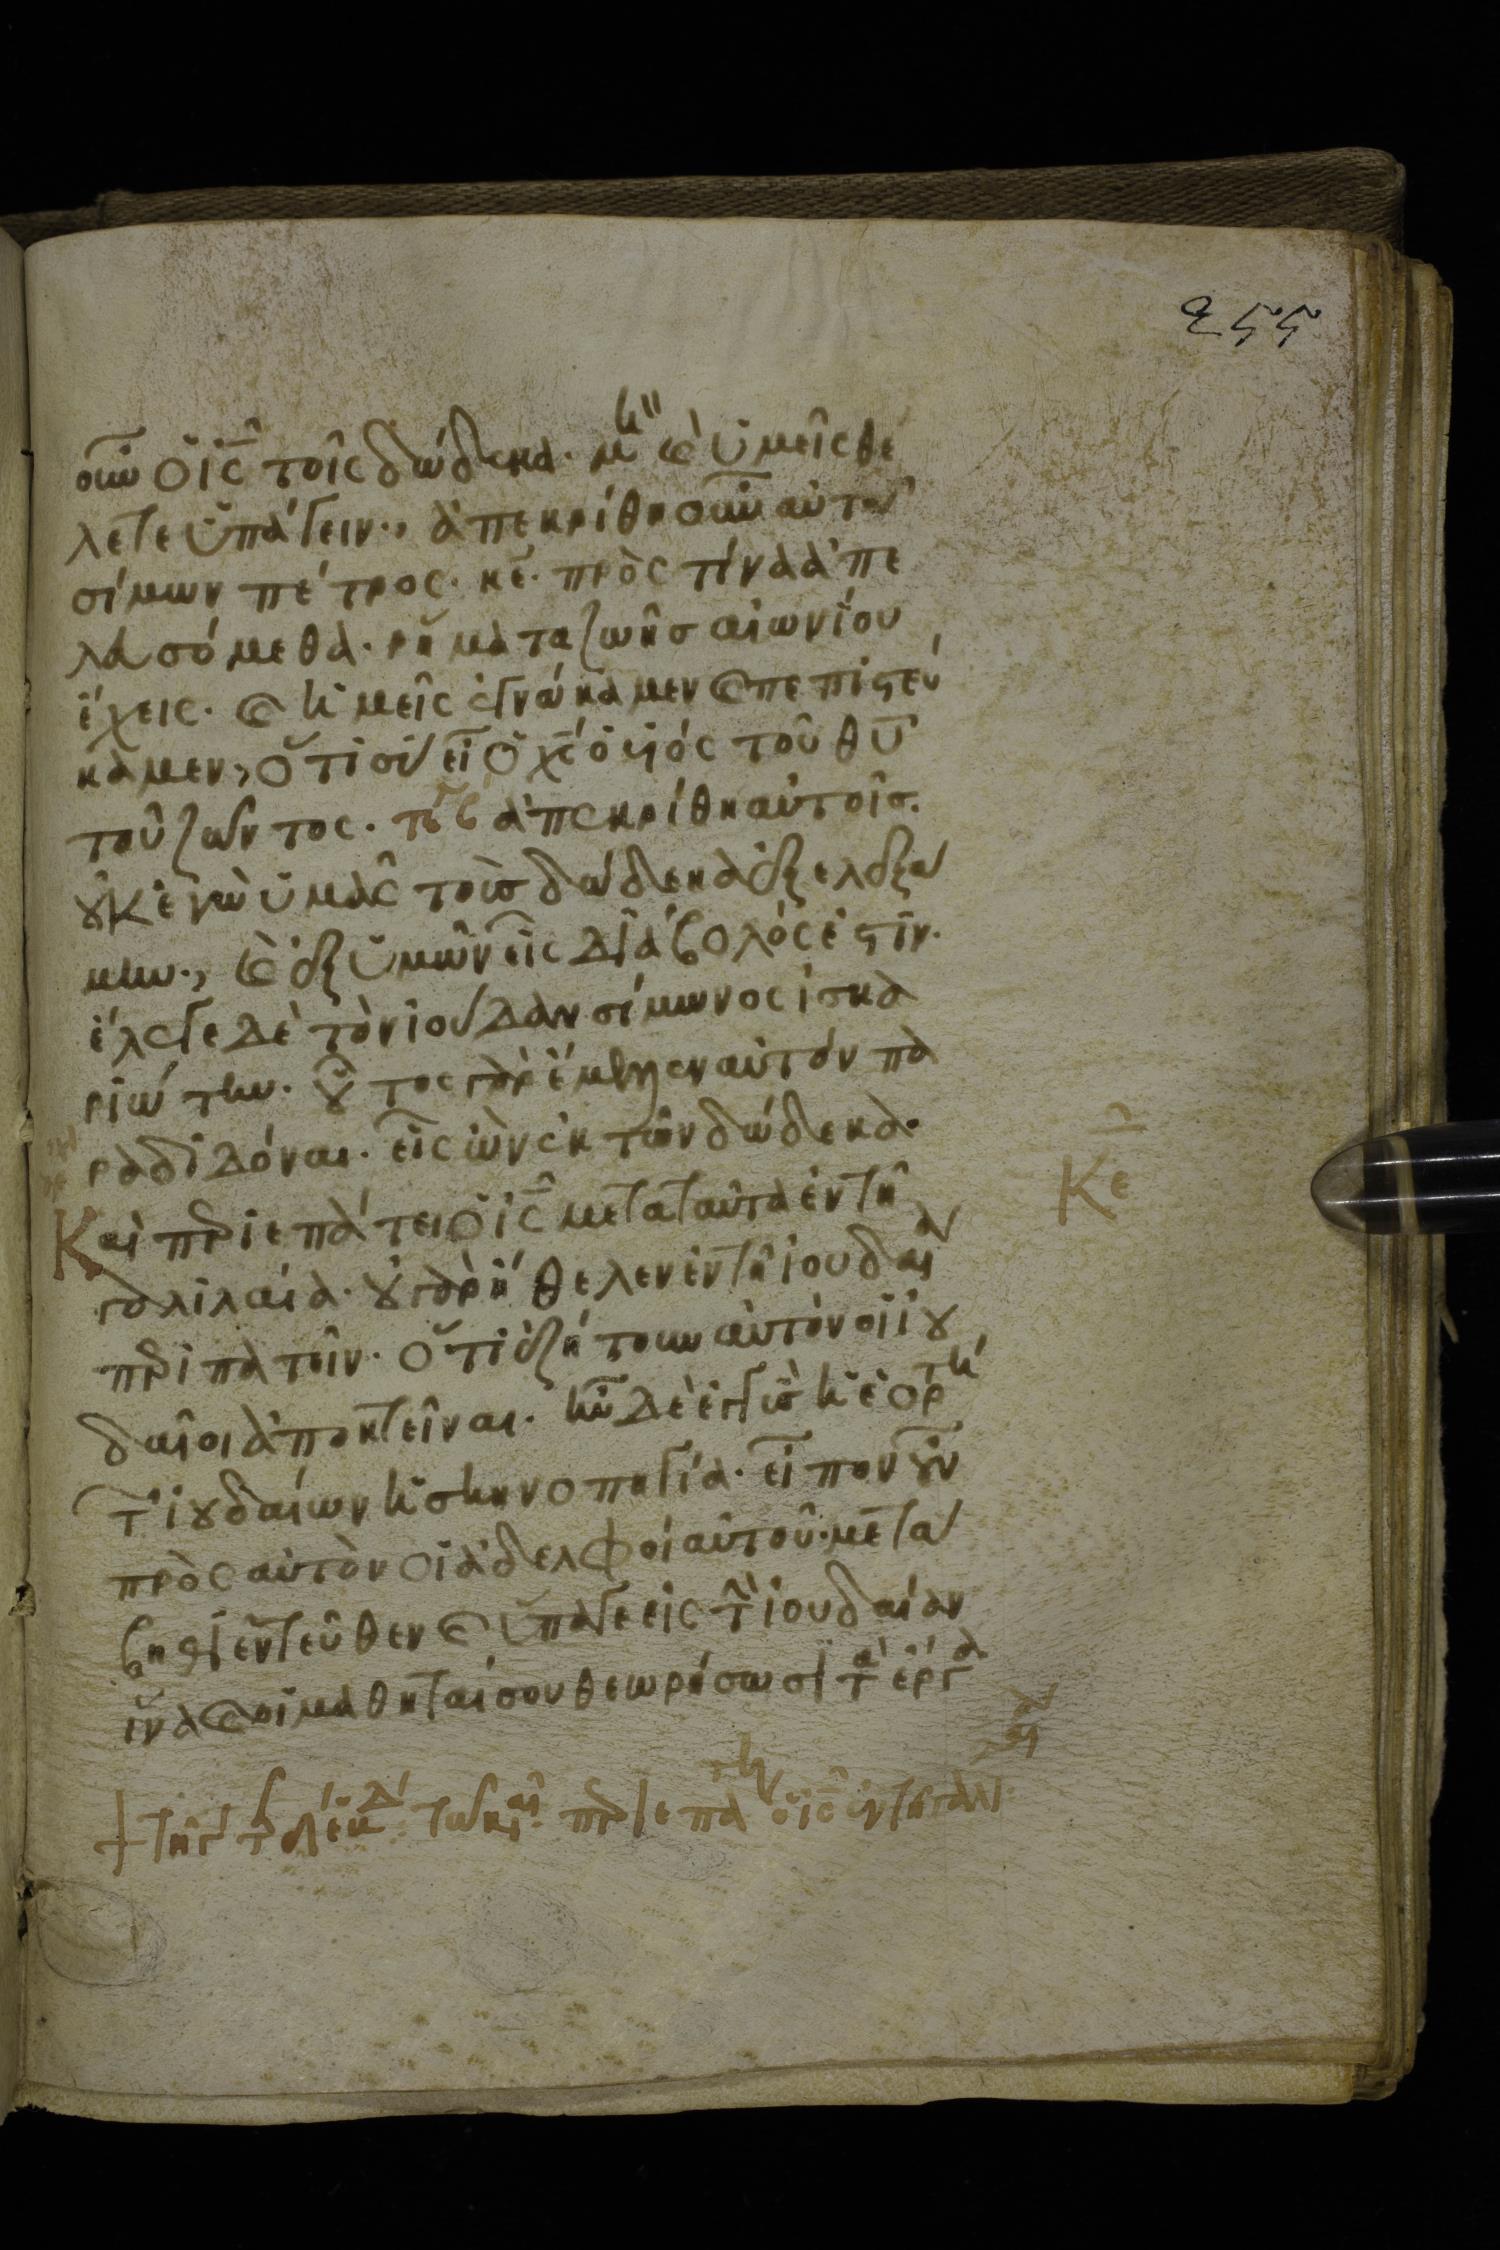 255
οὖν ὁ ις τοῖς δώδεκα· μὴ καὶ ὑμεῖς θέ
λετε ὑπάγειν., ἀπεκρίθη οὖν αὐτῶ
σίμων πέτρος· κε· πρὸς τίνα ἀπε
λασόμεθα· ρήματα ζωῆσ αἰωνίου
ἔχεις· καὶ ἡμεῖς ἐγνώκαμεν καὶ πεπιστεύ
καμεν, ὅτι σὺ εἶ ὁ χς ὁ υἱός τοῦ θυ
τοῦ ζῶντος· ἀπεκρίθη αὐτοῖσ.
οὐκ ἐγὼ ὑμᾶς τοὺσ δώδεκα ἐξελεξά
μην., καὶ ἐξ ὑμῶν εἷς διάβολός ἐστιν.
ἔλεγε δὲ τὸν ἰούδαν σίμωνος ἰσκα
ριώτην· οὗτος γὰρ ἔμελλεν αὐτόν πα
ραδιδόναι· εἷς ὢν ἐκ τῶν δώδεκα·
Καὶ περιεπάτει ὁ ις μετα ταῦτα ἐν τῆ
γαλιλαία· οὐ γὰρ ἤθελεν ἐν τῆ ἰουδαία
περιπατεῖν· ὅτι ἐζήτουν αὐτὸν οἱ ἰου
δαῖοι ἀποκτεῖναι· ἦν δὲ ἐγγὺσ ἡ ἑορτή
τῶν ἰουδαίων ἡ σκηνοπηγία· εἶπον οὖν
πρὸς αὐτὸν οἱ ἀδελφοὶ αὐτοῦ· μετά
βηθι ἐντεῦθεν καὶ ὕπαγε εἰς τὴν ἰουδαίαν
ἵνα καὶ οἱ μαθηταί σου θεωρήσωσι τὰ ἔργα
Κε